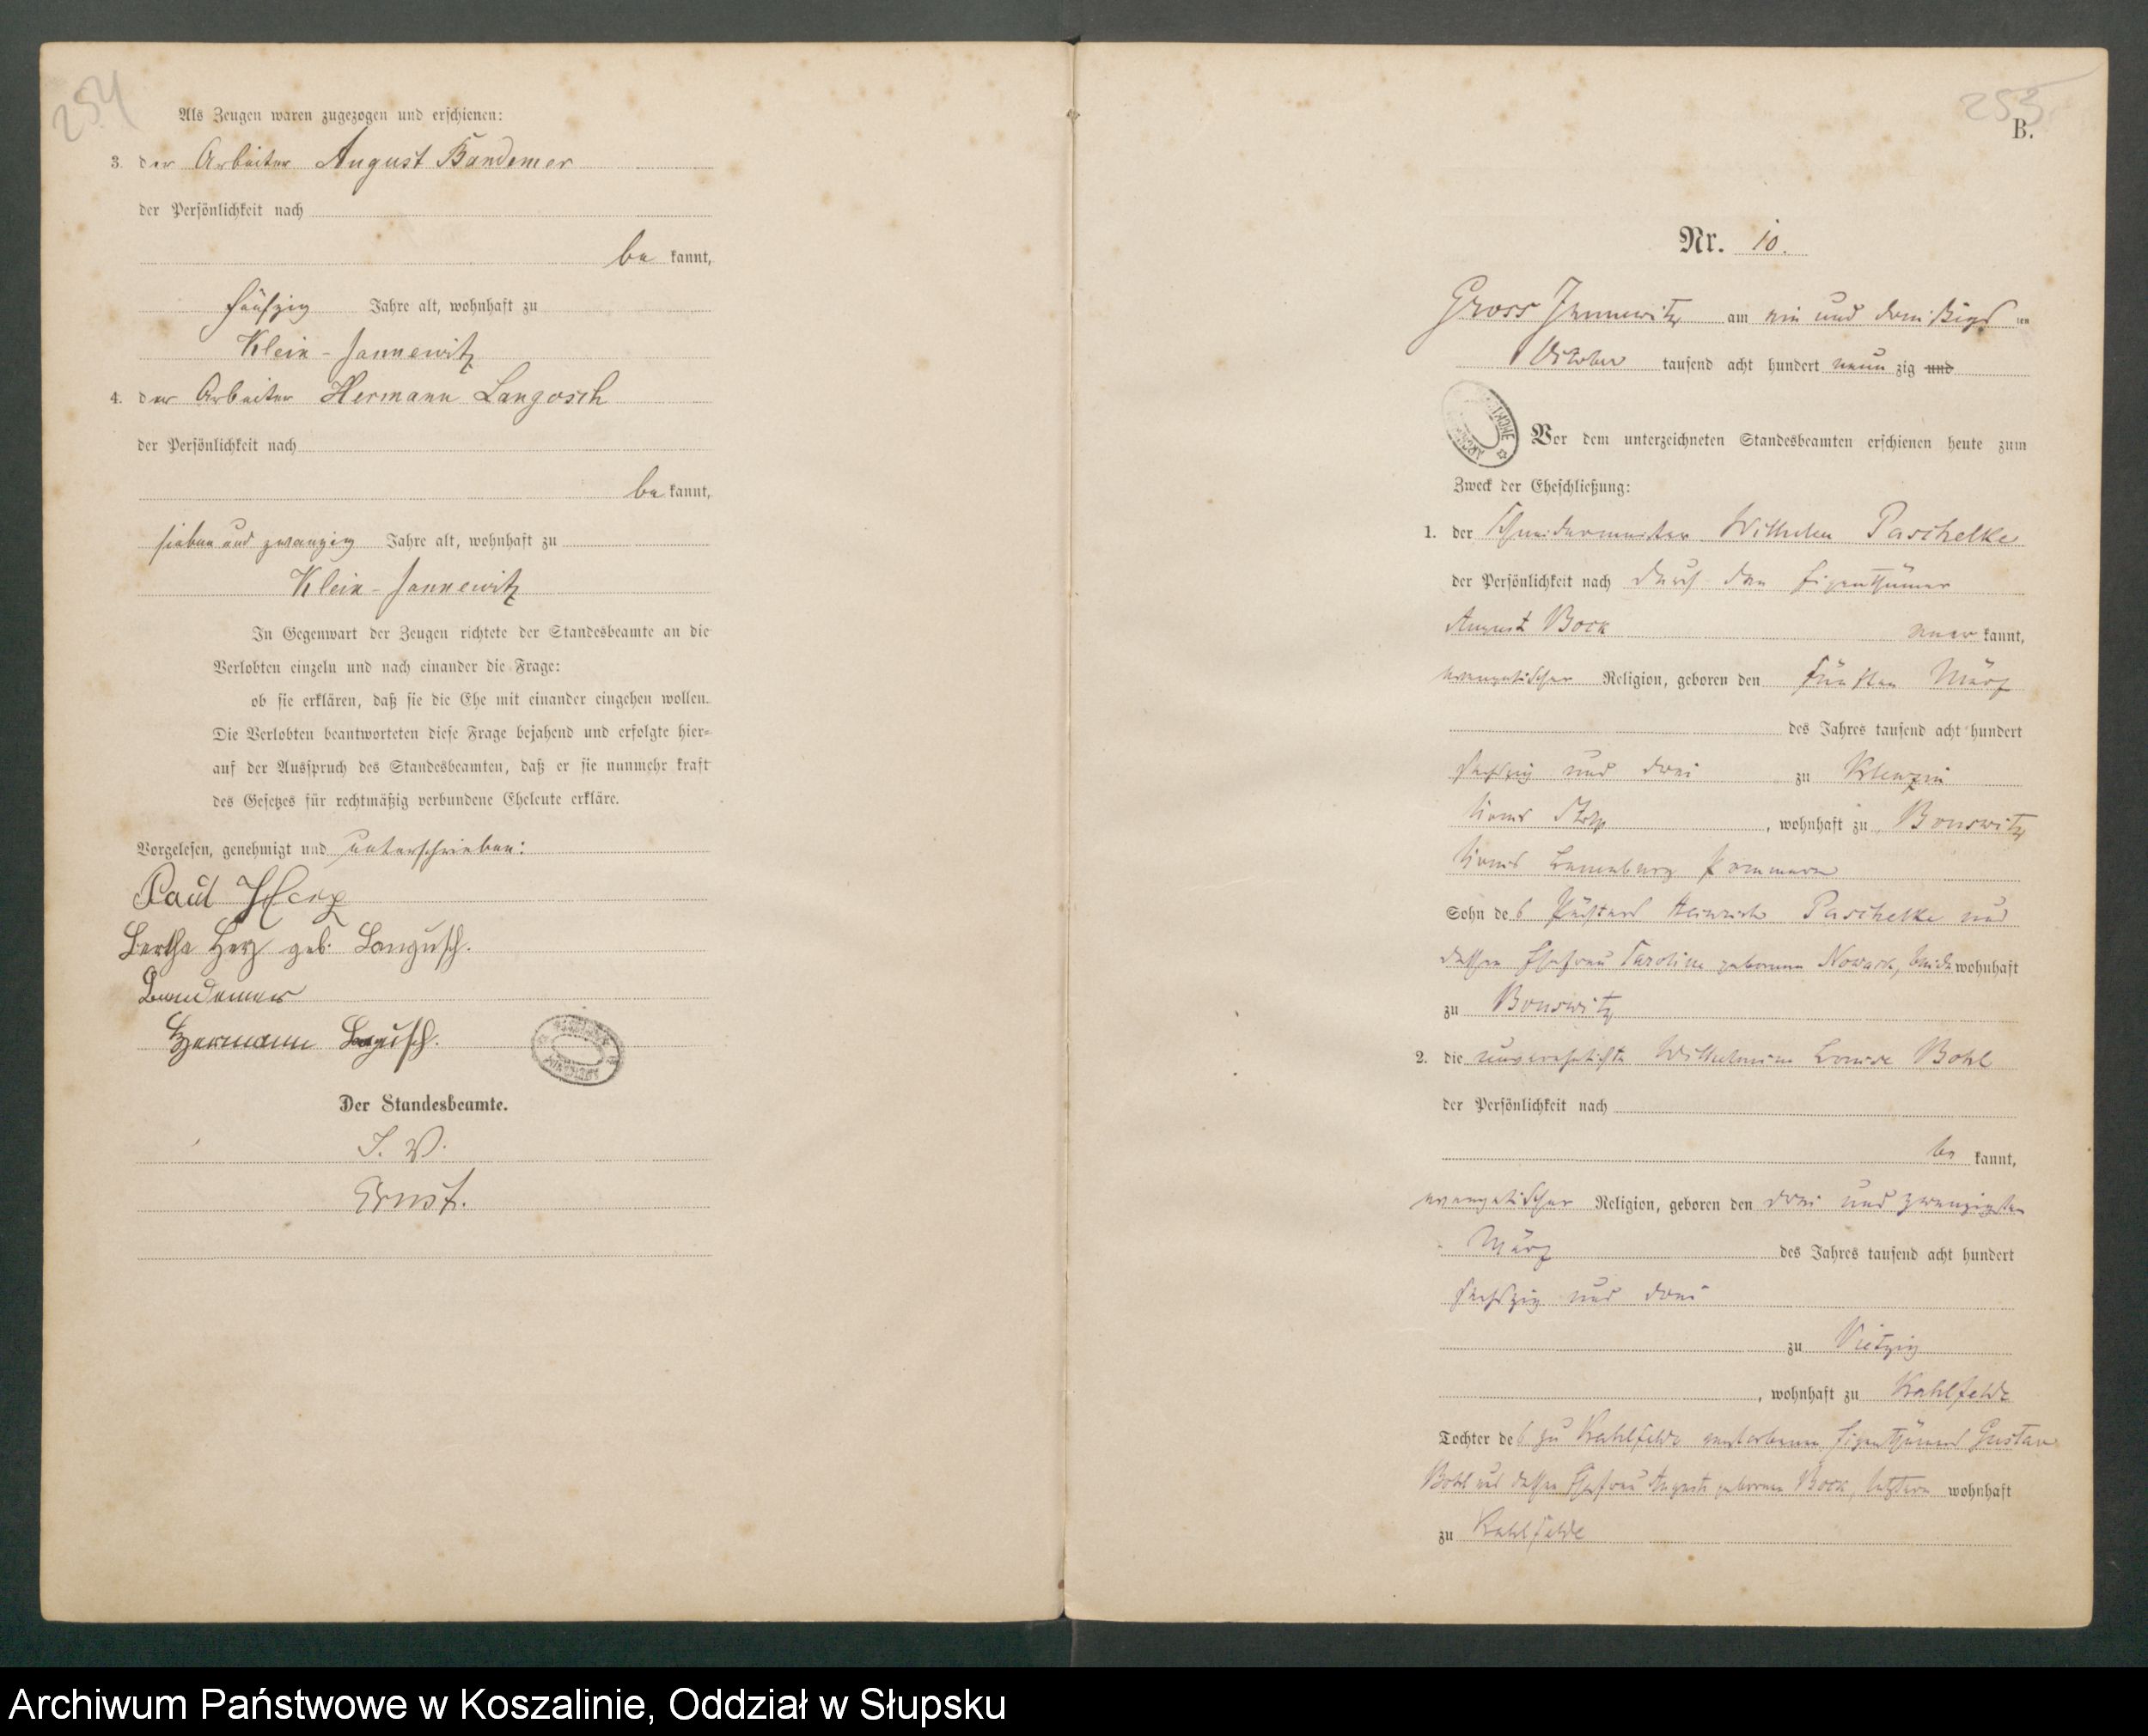 254
Als Zeugen waren zugezogen und erschienen:
3. der Arbeiter August Bandemer
der Persönlichkeit nach
be kannt,
fünfzig Jahre alt, wohnhaft zu
Klein-Jannewitz
4. der Arbeiter Hermann Langosch
der Persönlichkeit nach
be kannt,
sieben und zwanzig Jahre alt, wohnhaft zu
Klein-Jannewitz
In Gegenwart der Zeugen richtete der Standesbeamte an die
Verlobten einzeln und nach einander die Frage:
ob sie erklären, daß sie die Ehe mit einander eingehen wollen.
Die Verlobten beantworteten diese Frage bejahend und erfolgte hier-
auf der Ausspruch des Standesbeamten, daß er sie nunmehr kraft
des Gesetzes für rechtmäßig verbundene Eheleute erkläre.
Vorgelesen, genehmigt und unterschrieben:
Paul Herz
Bertha Herz geb. Langusch.
Bandemer
Hermann Langusch.
Der Standesbeamte.
I. V.
Ernst.
255
B.
Nr. 10.
Gross Jannewitz am ein und dreißigsten
October tausend acht hundert neun zig und
Vor dem unterzeichneten Standesbeamten erschienen heute zum
Zweck der Eheschließung:
1. der Schneidermeister Wilhelm Paschelke
der Persönlichkeit nach durch den Eigenthümer
August Bock aner kannt,
evangelischer Religion, geboren den fünften März
des Jahres tausend acht hundert
sechszig und drei zu Klenzin
Kreis Stolp, wohnhaft zu Bonswitz
Kreis Lauenburg Pommern
Sohn des Heinrich Paschelke und
dessen Ehefrau Caroline geborene Nowack, beide wohnhaft
zu Bonswitz
2. die unverehelichte Wilhelmine Louise Bohl
der Persönlichkeit nach
be kannt,
evangelischer Religion, geboren den drei und zwanzigsten
März des Jahres tausend acht hundert
sechszig und drei
zu Vietzig
, wohnhaft zu Kahlfelde
Tochter des zu Kahlfelde verstorbenen Eigenthümers Gustav
Bohl und dessen Ehefrau Auguste geborene Bock, letztere wohnhaft
zu Kahlfelde
Archiwum Państwowe w Koszalinie, Oddział w Słupsku